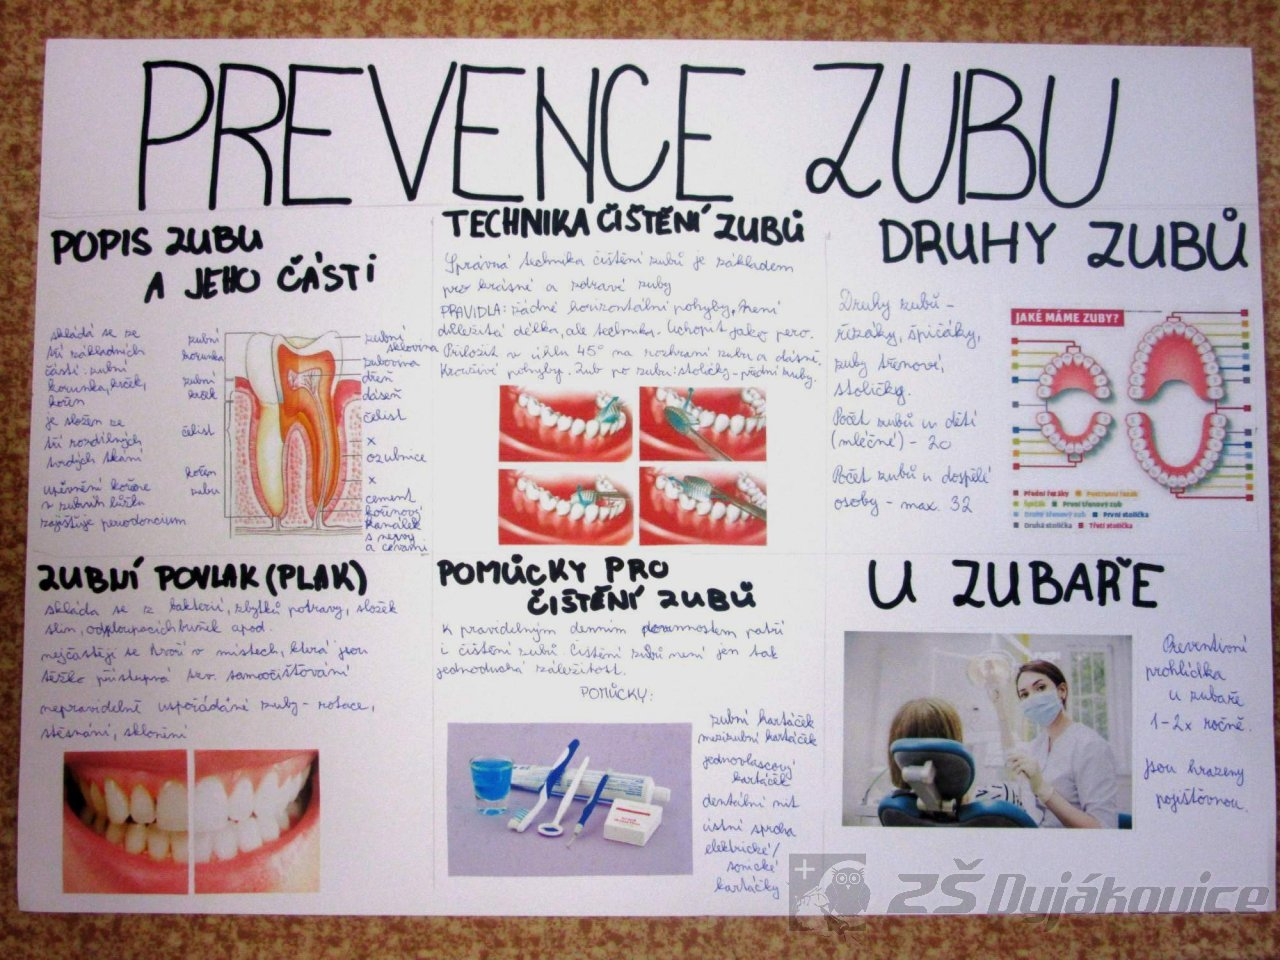 PREVENCE ZUBU
POPIS ZUBU
A JEHO ČÁSTÍ
skládá se ze
tří základních
částí: zubní
korunka, krček,
kořen
je složen ze
tří rozdílných
tvrdých tkání
upevnění kořene
v zubním lůžku
zajišťuje periodoncium
zubní
korunka
zubní
krček
čelist
kořen
zubu
zubní
sklovina
zubovina
dřeň
dáseň
čelist
x
ozubnice
x
cement
kořenový
kanálek
s nervy
a cévami
TECHNIKA ČIŠTĚNÍ ZUBŮ
Správná technika čištění zubů je základem
pro krásné a zdravé zuby
PRAVIDLA: žádné horizontální pohyby. Není
důležitá délka, ale technika. Uchopit jako pero.
Přiložit v úhlu 45° na rozhraní zubu a dásně.
Krouživé pohyby. Zub po zubu: stoličky - přední zuby.
DRUHY ZUBŮ
Druhy zubů -
řezáky, špičáky,
zuby třenové,
stoličky.
Počet zubů u dětí
(mléčné) - 20
Počet zubů u dospělé
osoby - max. 32
JAKÉ MÁME ZUBY?
Přední řezáky
Postranní řezák
Špičák
První třenový zub
Druhý třenový zub
První stolička
Druhá stolička
Třetí stolička
ZUBNÍ POVLAK (PLAK)
skládá se z bakterií, zbytků potravy, složek
slin, odloupaých buněk apod.
nejčastěji se tvoří v místech, která jsou
těžko přístupná tzv. samoočišťování
nepravidelně uspořádané zuby - rotace,
stěsnání, sklonění
POMŮCKY PRO
ČIŠTĚNÍ ZUBŮ
K pravidelným denním povinnostem patří
i čištění zubů. Čištění zubů není jen tak
jednoduchá záležitost.
POMŮCKY:
zubní kartáček
mezizubní kartáček
jednovlascový
kartáček
dentální nit
ústní sprcha
elektrické/
sonické
kartáčky
U ZUBAŘE
Preventivní
prohlídka
u zubaře
1-2x ročně.
jsou hrazeny
pojišťovnou.
ZŠ Dyjákovice